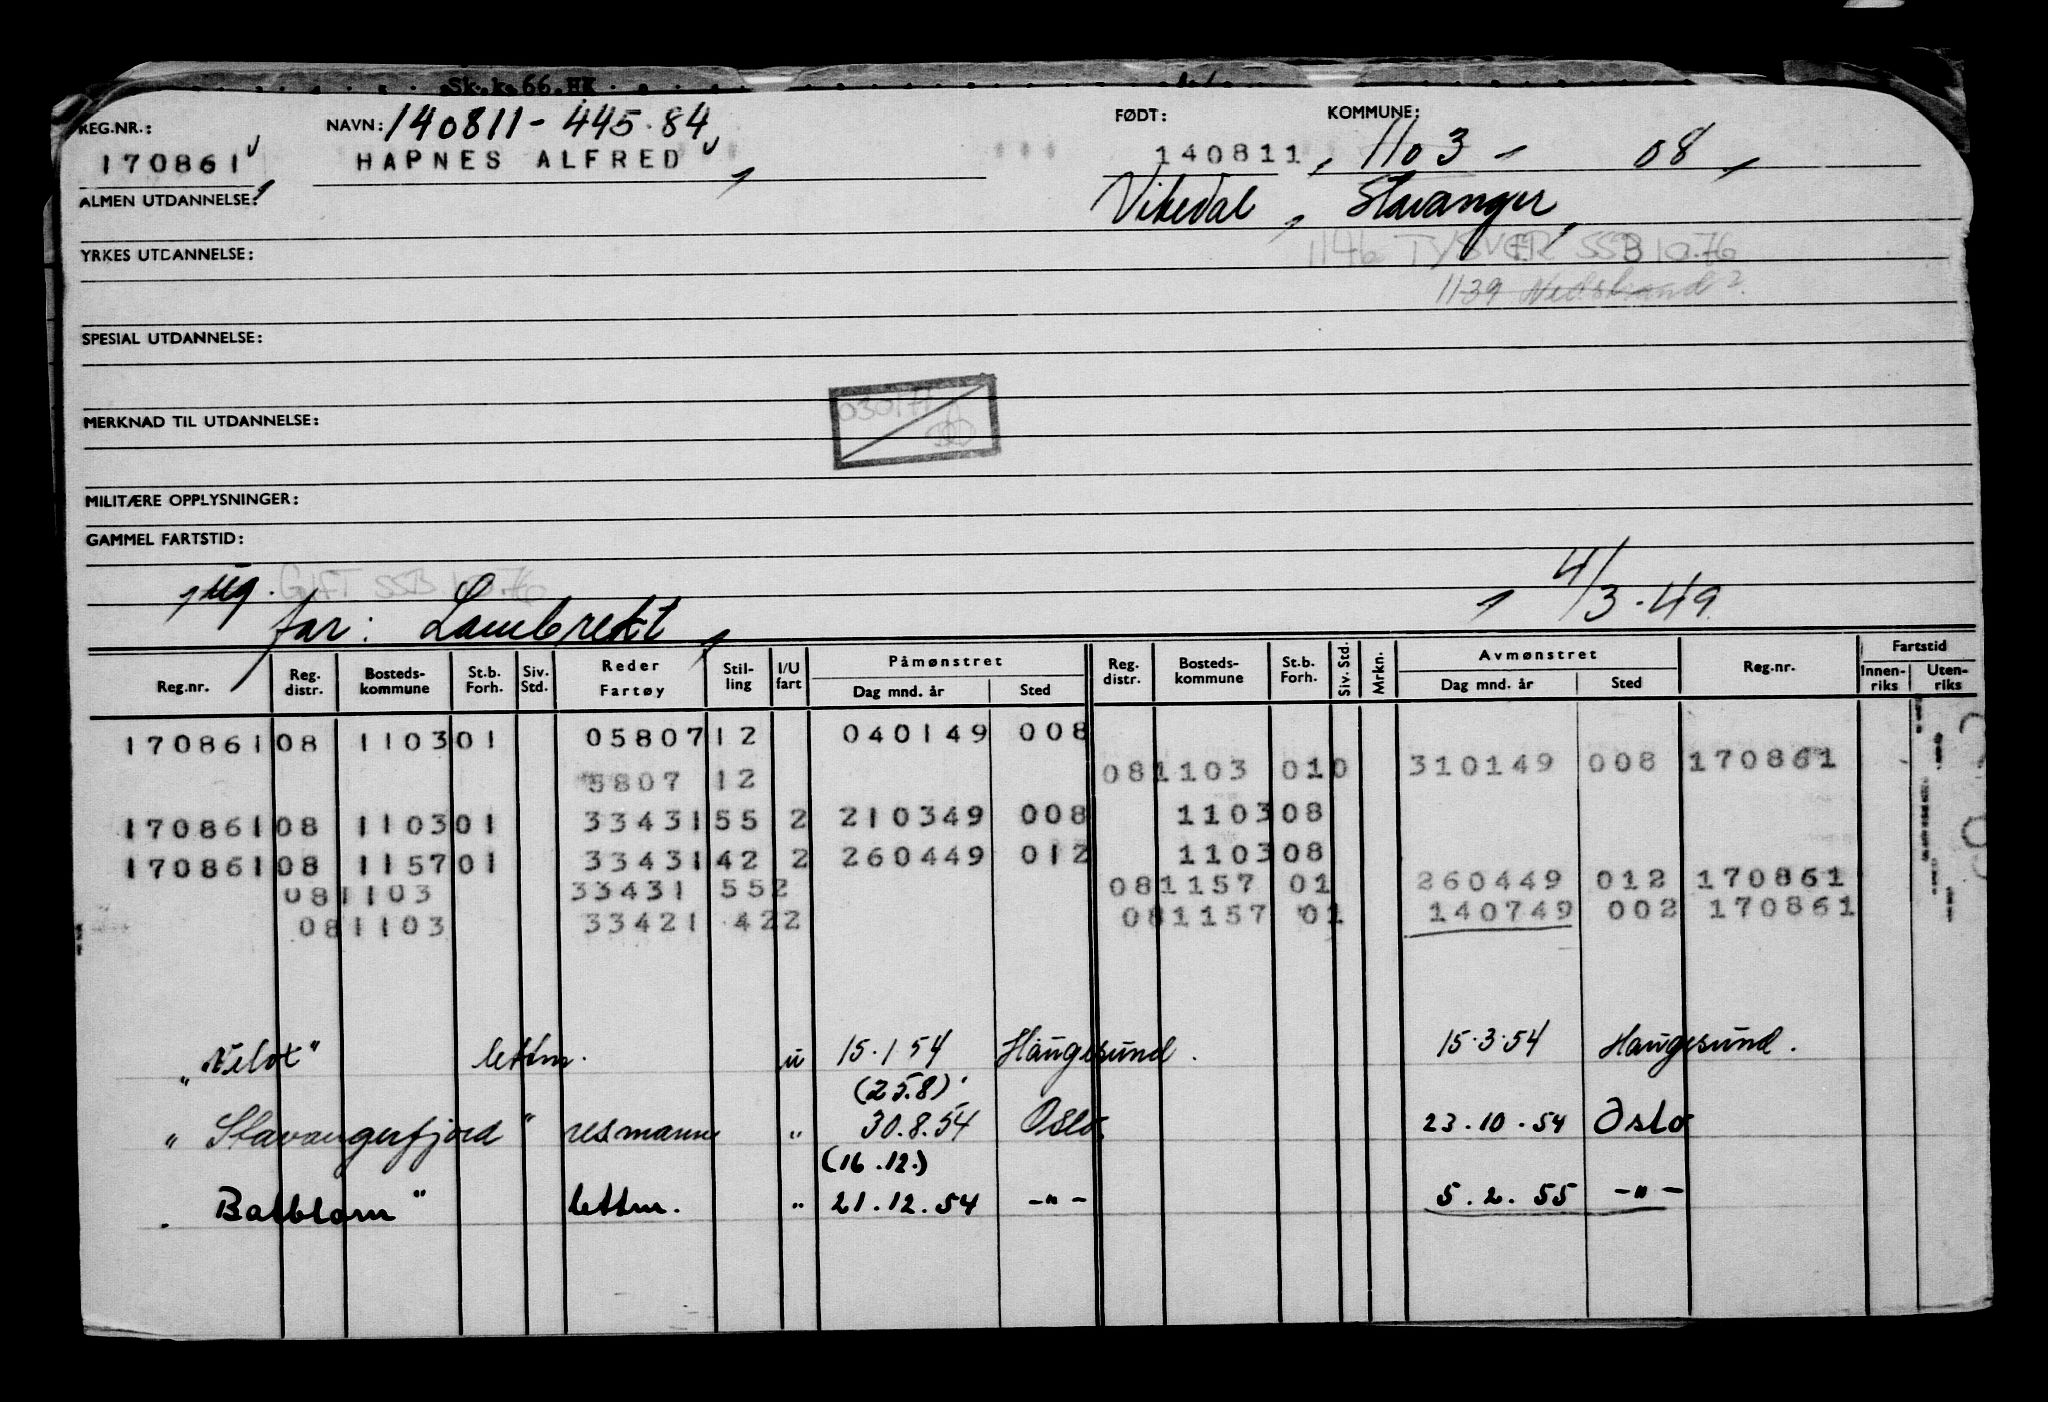 Sk.k.66 HK
REG.NR.: NAVN: 140811-445.84 FØDT: KOMMUNE:
170861 HAPNES ALFRED 140811, 1103 - 08
ALMEN UTDANNELSE: Vikedal, Stavanger,
YRKES UTDANNELSE: 1146 TYSVÆR SSB 10.76
1139 Nedstrand ?
SPESIAL UTDANNELSE:
MERKNAD TIL UTDANNELSE: 030177
MILITÆRE OPPLYSNINGER:
GAMMEL FARTSTID:
ug. GIFT SSB 10.76 4/3.49
far: Lambrekt,
Reg.nr. Reg. distr. Bosteds-kommune St.b. Forh. Siv. Std. Reder Fartøy Stil-ling I/U fart Påmønstret Dag mnd. år Sted Reg. distr. Bosteds-kommune St.b. Forh. Siv. Std. Mrkn. Avmønstret Dag mnd. år Sted Reg.nr. Fartstid Innen-riks Uten-riks
170861 08 1103 01 05807 12 040149 008
5807 12 081103 010 310149 008 170861
170861 08 1103 01 33431 55 2 210349 008 1103 08
170861 08 1157 01 33431 42 2 260449 012 1103 08
081103 33431 552 081157 01 260449 012 170861
081103 33421 422 081157 01 140749 002 170861
"Velox" lettm. u 15.1 54 Haugesund. 15.3.54 Haugesund.
(25.8)
"Stavangerfjord" resmann " 30.8.54 Oslo. 23.10.54 Oslo
(16.12.)
Balblom" lettm. " 21.12.54 -"- 5.2.55 -"-